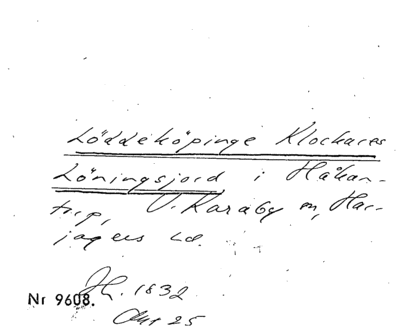 Löddeköpinge Klockares
Löningsjord i Håkan-
torp, V. Karaby sn, Har-
jagers hd.
Jh. 1832
Nr 9608.
Akt 25